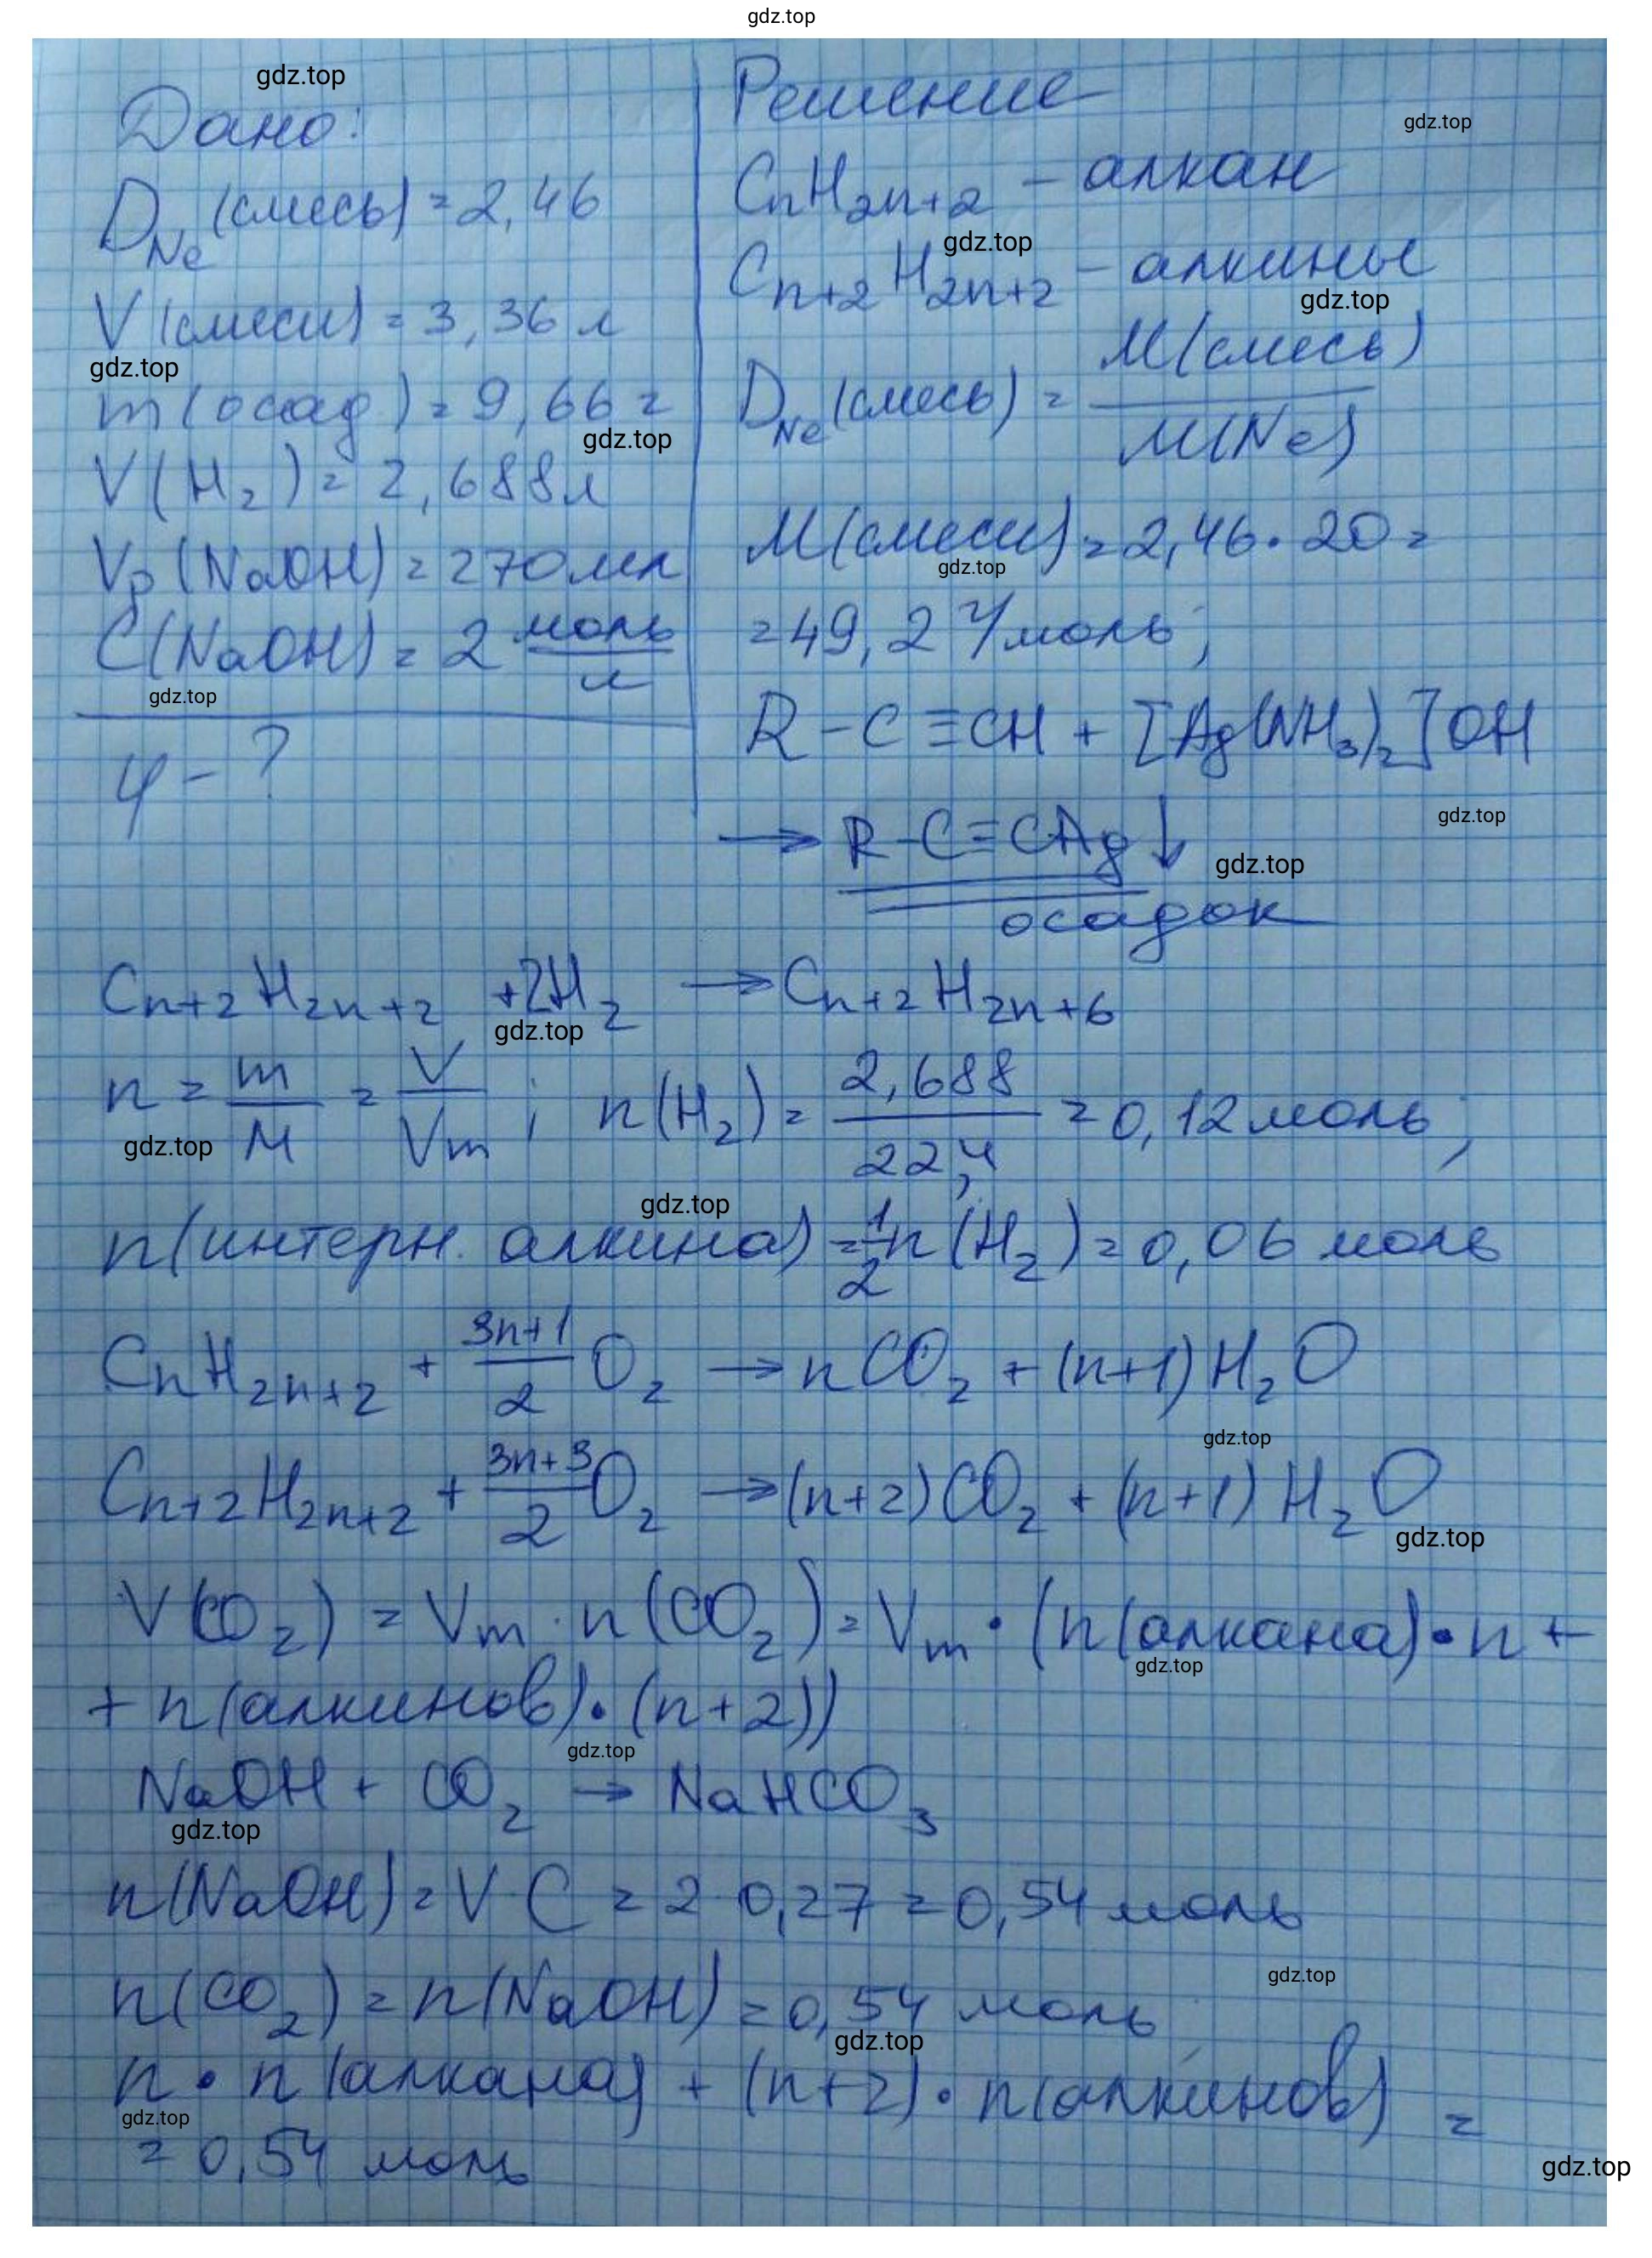 gdz.top
gdz.top
Дано:
D_Ne (смесь) = 2,46
V (смеси) = 3,36 л
gdz.top
m (осад.) = 9,66 г
gdz.top
V(H₂) = 2,688 л
Vр (NaOH) = 270 мл
C(NaOH) = 2 моль/л
gdz.top
φ - ?
Решение
gdz.top
CnH2n+2 - алкан
gdz.top
Cn+2H2n+2 - алкины
gdz.top
D_Ne (смесь) = M(смесь)/M(Ne)
M(смеси) = 2,46 · 20 =
gdz.top
= 49,2 г/моль;
R - C ≡ CH + [Ag(NH₃)₂]OH
gdz.top
→ R - C ≡ CAg ↓
gdz.top
осадок
Cn+2H2n+2 + 2H₂ → Cn+2H2n+6
gdz.top
n = m/M = V/Vm ; n(H₂) = 2,688/22,4 = 0,12 моль;
gdz.top
gdz.top
n(интерн. алкина) = 1/2 n(H₂) = 0,06 моль
CnH2n+2 + (3n+1)/2 O₂ → nCO₂ + (n+1)H₂O
gdz.top
Cn+2H2n+2 + (3n+3)/2 O₂ → (n+2)CO₂ + (n+1)H₂O
gdz.top
V(CO₂) = Vm · n(CO₂) = Vm · (n(алкана) · n +
gdz.top
+ n(алкинов) · (n+2))
gdz.top
NaOH + CO₂ → NaHCO₃
gdz.top
n(NaOH) = V C = 2 0,27 = 0,54 моль
gdz.top
n(CO₂) = n(NaOH) = 0,54 моль;
gdz.top
n · n(алкана) + (n+2) · n(алкинов) =
gdz.top
= 0,54 моль
gdz.top